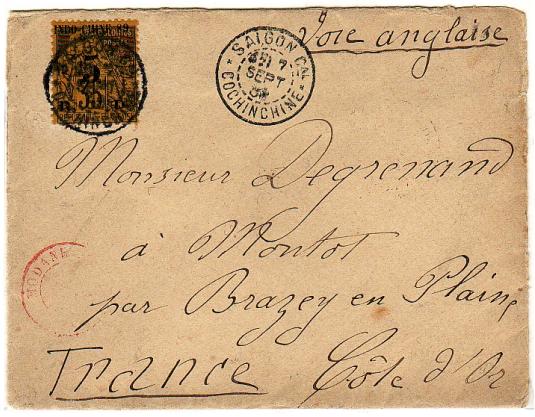 INDO-CHINE 89.
5
35
Voie anglaise
SAIGON CN.
7
SEPT
COCHINCHINE
Monsieur Degrenand
à Montot
MODANE
par Brazey en Plaine
France Côte d'Or